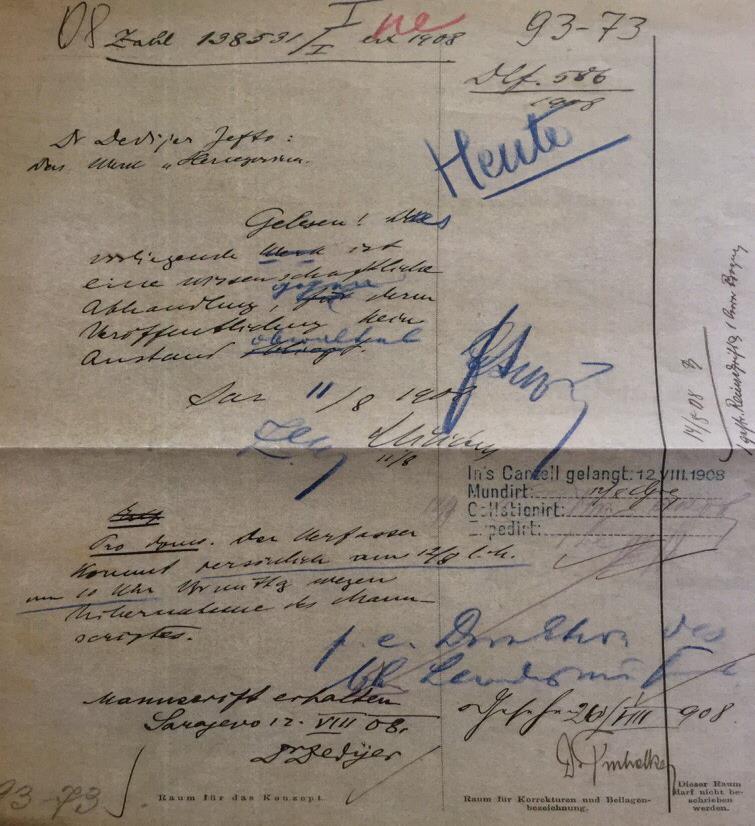 08 Zahl 198531/I I ne ex 1908
93-73
Dlf. 586
1908
Heute
Dr Dedijer Jefto:
Das Werk „Hercegovina.
Gelesen! Das
vorliegende Werk ist
eine wissenschaftliche
gegen
Abhandlung, deren
Veröffentlichung kein
obwaltet
Anstand obliegt.
Sar 11/8 1908
11/8
In's Canzell gelangt: 12 VIII. 1908
Mundirt:
Collationirt:
Expedirt:
Pro domo. Der Verfasser
kommt persönlich am 12/8 l. M.
um 10 Uhr Vormittg wegen
Übernahme des Manu-
scriptes.
p. c. Direktion des
Manuscript erhalten
Sarajevo 12. VIII 08.
Dr Dedijer
Gesehen 20/VIII 908
Dr Truhelka
14/8 08
93-73
Raum für das Konzept.
Raum für Korrekturen und Beilagen-
bezeichnung.
Dieser Raum
darf nicht be-
schrieben
werden.